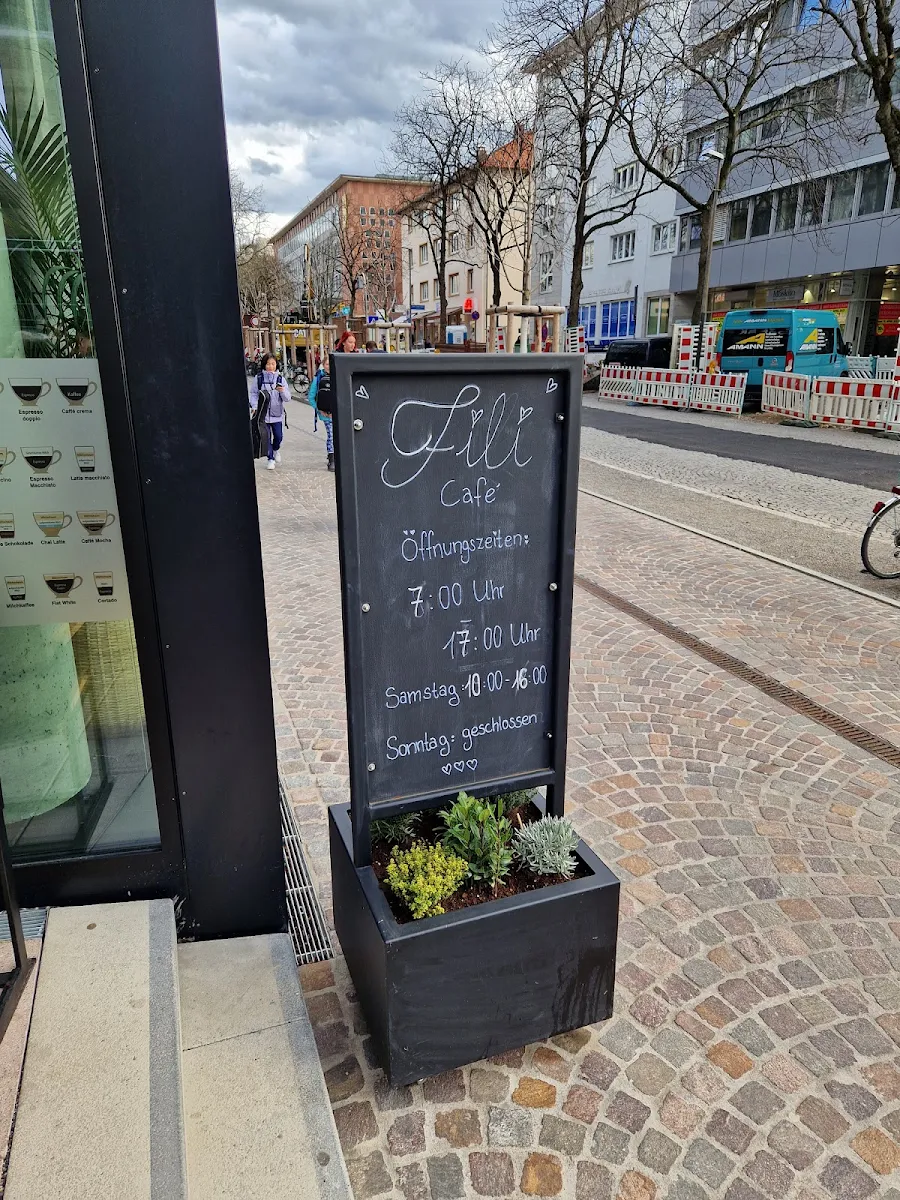 Fili
Café
Öffnungszeiten:
7:00 Uhr
17:00 Uhr
Samstag: 10:00-16:00
Sonntag: geschlossen
Espresso doppio
Caffè crema
Espresso Macchiato
Latte macchiato
Chai Latte
Caffè Mocha
Milchkaffee
Flat White
Cortado
AMANN